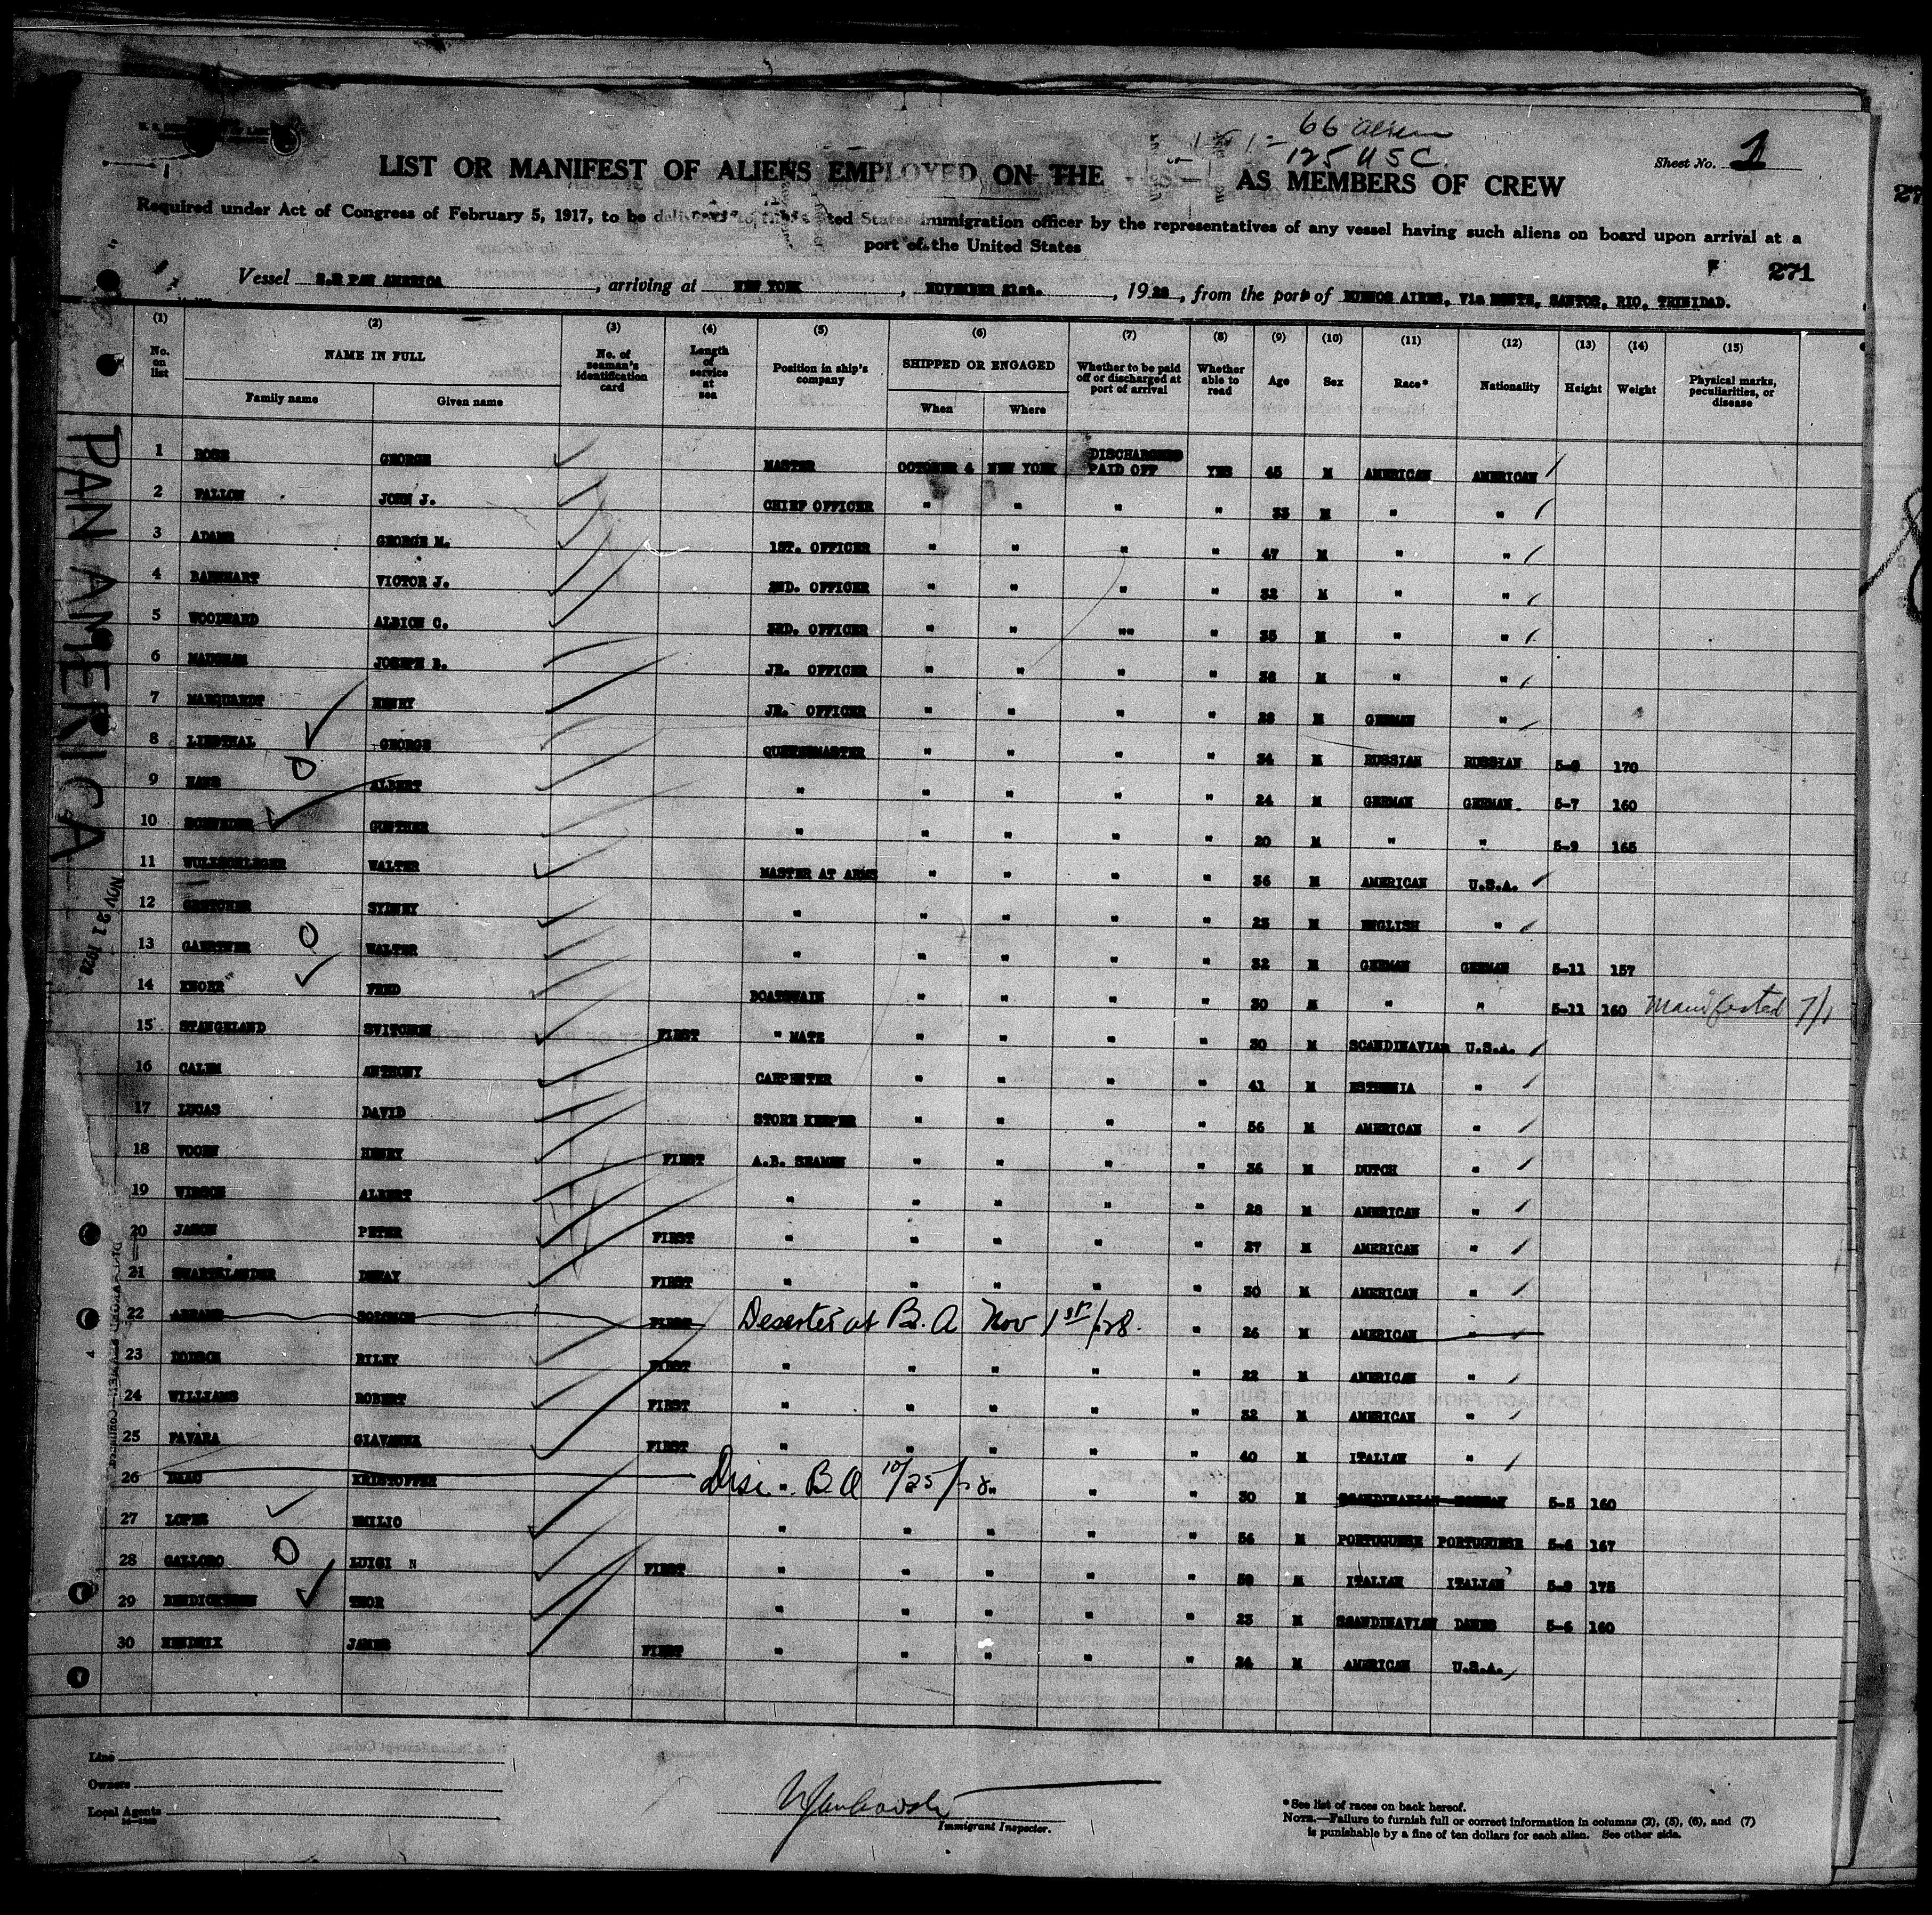 66 alien
125 U S C.
Sheet No. 1
LIST OR MANIFEST OF ALIENS EMPLOYED ON THE AS MEMBERS OF CREW
Required under Act of Congress of February 5, 1917, to be delivered to the United States immigration officer by the representatives of any vessel having such aliens on board upon arrival at a
port of the United States
F 271
Vessel S.S PAN AMERICA, arriving at NEW YORK, NOVEMBER 21st., 1928, from the port of BUENOS AIRES, Via MONTE, SANTOS, RIO, TRINIDAD.
(1) (2) (3) (4) (5) (6) (7) (8) (9) (10) (11) (12) (13) (14) (15)
No. on list NAME IN FULL No. of seaman's identification card Length of service at sea Position in ship's company SHIPPED OR ENGAGED Whether to be paid off or discharged at port of arrival Whether able to read Age Sex Race* Nationality Height Weight Physical marks, peculiarities, or disease
Family name Given name When Where
1 ROSE GEORGE MASTER OCTOBER 4 NEW YORK DISCHARGED PAID OFF YES 45 M AMERICAN AMERICAN
2 FALLON JOHN J. CHIEF OFFICER " " " " 33 M " "
3 ADAMS GEORGE M. 1ST. OFFICER " " " " 47 M " "
4 BARNHART VICTOR J. 2ND. OFFICER " " " " 32 M " "
5 WOODWARD ALBION C. 3RD. OFFICER " " "" " 35 M " "
6 JOSEPH B. JR. OFFICER " " " " 38 M " "
7 MARQUARDT HENRY JR. OFFICER " " " " 28 M GERMAN "
8 LIENTHAL GEORGE " " " " 34 M RUSSIAN RUSSIAN 170
9 HANS ALBERT " " " " " 24 M GERMAN GERMAN 5-7 160
10 SCHNEDER GUNTHER " " " " " 20 M " " 5-9 165
11 WULLSCHLEGER WALTER MASTER AT ARMS " " " " 36 M AMERICAN U.S.A.
12 SYDNEY " " " " " 25 M ENGLISH "
13 GAERTNER WALTER " " " " " 32 M GERMAN GERMAN 5-11 157
14 KNORR FRED BOATSWAIN " " " " 30 M " " 5-11 160 Manifested 7/1
15 STANGELAND FIRST " MATE " " " " 30 M SCANDINAVIAN U.S.A.
16 CALEM ANTHONY CARPENTER " " " " 41 M ESTHENIA "
17 LUCAS DAVID STORE KEEPER " " " " 56 M AMERICAN "
18 HENRY FIRST A.B. SEAMEN " " " " 36 M DUTCH "
19 ALBERT " " " " " 28 M AMERICAN "
20 JASON PETER FIRST " " " " " 27 M AMERICAN "
21 SWARTSLANDER DEWAY FIRST " " " " " 30 M AMERICAN "
22 ABRAMS SOLOMON FIRST Deserted at B.A Nov 1st/28. " 26 M AMERICAN "
23 DODSON RILEY FIRST " " " " " 22 M AMERICAN "
24 WILLIAMS ROBERT FIRST " " " " " 32 M AMERICAN "
25 FAVARA GIAVANNA FIRST " " " " " 40 M ITALIAN "
26 KRISTOFFER Disc " B A 10/25/28 " " " 30 M SCANDINAVIAN NORWAY 5-5 160
27 LOPES EMILIO " " " " " 56 M PORTUGUESE PORTUGUESE 5-6 167
28 GALLORO LUIGI N FIRST " " " " " M ITALIAN ITALIAN 175
29 BENDICKTSEN THOR " " " " " 23 M SCANDINAVIAN DANES 5-6 160
30 HENDRIX JAMES FIRST " " " " " 24 M AMERICAN U.S.A.
PAN AMERICA
NOV 21 1928
Line
Owners
Local Agents
Immigrant Inspector.
*See list of races on back hereof.
NOTE.—Failure to furnish full or correct information in columns (2), (5), (6), and (7)
is punishable by a fine of ten dollars for each alien. See other side.